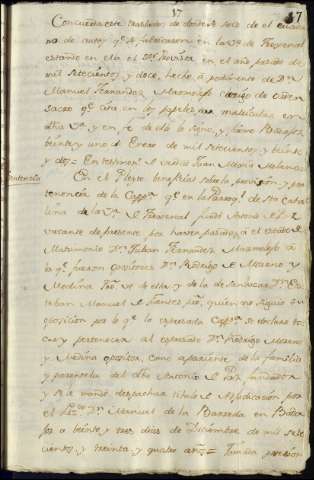 17
17
Concuerda este traslado de
no de autos qe. se fabricaron en la Va. de Frexenal
estando en ella el en el año pasado de
mil setecientos y doce, hecho à pedimento de Dn.
Manuel Fernandez Marmolejo clerigo de orden
sacro qe. esta en los papeles por
dha Va. y en fe de ello lo signo, y firmo Badajoz
beinte y uno de Enero de mil setecientos y beinte
y dos = En testimonio de verdad Juan
Sentencia
En el Pleyto beneficial sobre la provision, y per
tenencia de la Cappna. qe. en la Parroqa. de Sta. Catha
lina de la Va. de Frexenal fundó Antonio de Paz
vacante de presente por haver pasado à el estado de
Matrimonio Dn. Julian Fernandez Marmolejo à
la qe. fueron opositores Dn. Rodrigo de Moreno y
Medina de ella y de la de Dn. Es
teban Manuel de Fuentes pro. quien no siguio su
oposicion por lo qe. la expresada Cappna. se declaro to
car y pertenecer al expresado Dn. Rodrigo Moreno
y Medina opositor, como apariente de la familia
y parentela del dho Antonio de Paz fundador
y se le mandò despachar titulo de Adjudicacion por
el Dn. Manuel de la Barreda en Bada
joz a beinte y tres dias de Diciembre de mil sete
cientos, y treinta y quatro años = Tomada posesion